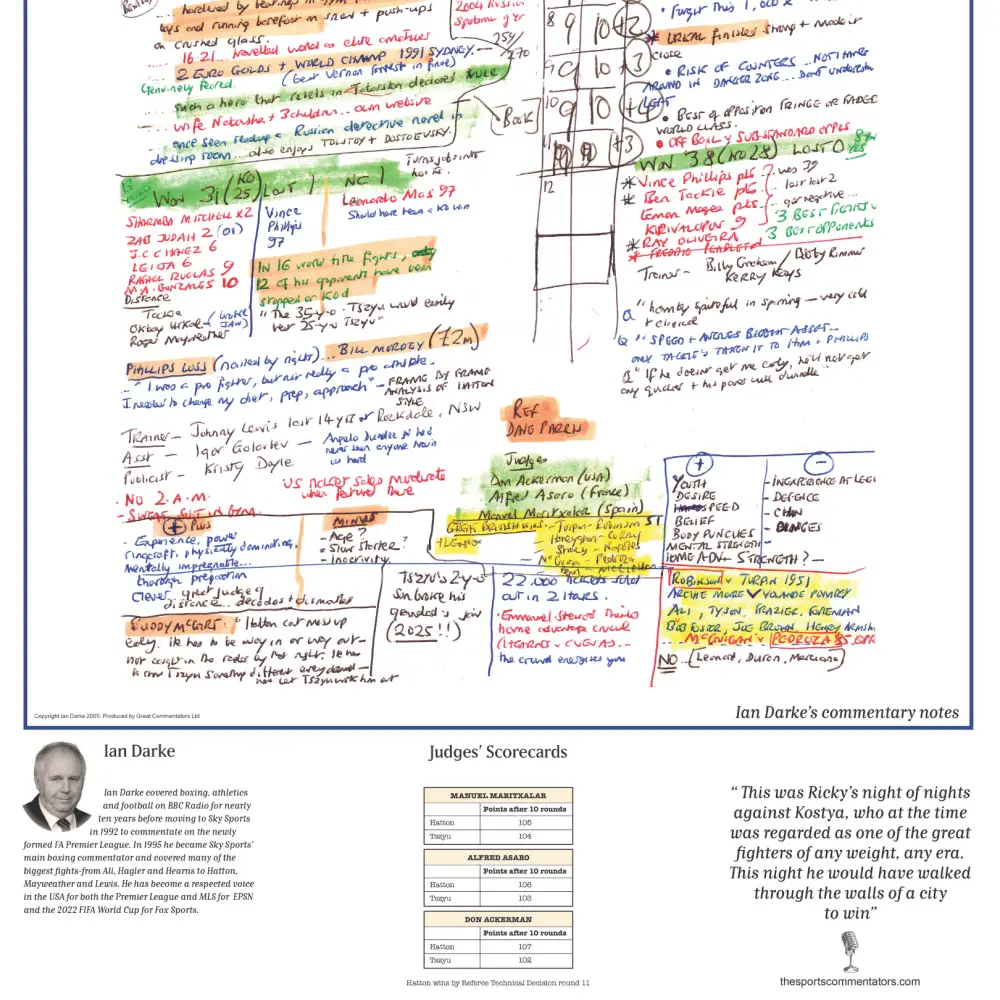 hardened by beatings in gym
legs and running barefoot in snow + push-ups
on crushed glass.
16-21... travelled world as elite amateur
2 EURO GOLDS + WORLD CHAMP 1991 SYDNEY.
Genuinely feared. (beat Vernon Forrest in final)
Such a hero that rebels in Tatarstan declared truce
wife Natasha + 3 children... own website
once seen reading a Russian detective novel in
dressing room... also enjoys TOLSTOY + DOSTOEVSKY.
2004 Russia
259/
270
Book
8 9 10 +2
9 10 +3
10 9 10 +4
11 +3
12
* URKAL finished strong + made it
close
• RISK OF COUNTERS... NOT HANG
AROUND IN DANGER ZONE... Don't underestim
LEFT
• BEST OF OPPOSITION FRINGE OR FADED
WORLD CLASS.
• OFF BODLY SUBSTANDARD OPPOS
WON 38 (KO 28) LOST 0
YES
* Vince Phillips pts
was 39
* Ben Tackie pts
lost last 2
Eamon Magee pts
got negative...
KIRIVALOPUS 9
3 BEST FIGHTS v
* RAY OLIVEIRA
3 BEST OPPONENTS
Trainer - Billy Graham / Bobby Rimmer
KERRY KAYS
Q " horribly spiteful in sparring — very cold
+ clinical
Q " SPEED + ANGLES BIGGEST ASSET...
ONLY TACKIE'S TAKEN IT TO HIM + PHILLIPS
Q " If he doesn't get me early, he'll not get
any quicker + his power will dwindle"
WON 31 (KO 25) LOST 1 NC 1
Turns jabs into
hooks.
SHARMBA MITCHELL x2
ZAB JUDAH 2 (01)
J.C CHAVEZ 6
LEIJA 6
RAFAEL RUELAS 9
M.A. GONZALES 10
DISTANCE
Tackie
Oktay Urkal - (broke JAW)
Roger Mayweather
Vince
Phillips
97
Leonardo Mas 97
Should have been a KO win
IN 16 world title fights, only
12 of his opponents have been
stopped or KOd
" The 35-y-o Tszyu would easily
beat 25-y-o Tszyu"
PHILLIPS LOSS (nailed by rights)... BILL MORDEY (£2m)
" I was a pro fighter, but not really a pro ambitie.
I needed to change my diet, prep, approach" - FRAME BY FRAME
ANALYSIS OF HATTON
STYLE
TRAINER - Johnny Lewis last 14 yrs at Rockdale, NSW
Asst - Igor Golovtev - Angelo Dundee said had
never seen anyone train
so hard
Publicist - Kristy Doyle
REF
DAVE PARRIS
Judges
Don Ackerman (USA)
Alfred Asaro (France)
Manuel Maritxalar (Spain)
US ticket sales moderate
when featured there
· NO 2.A.M.
- SWEAT SUIT IN GYM
GREAT BRITISH WINS - Turpin - Robinson
+ LENNOX
Honeyghan - Curry
Stracey - Napoles
McGuigan - Pedroza
Benn - McClellan
+ Plus
- Experience, power
ringcraft, physically dominating,
mentally impregnable...
thorough preparation
Clever, great judge of
distance... decodes + dismantles
MINUS
- Age?
- Slow starter?
- Inactivity.
+
YOUTH
DESIRE
HAND SPEED
BELIEF
BODY PUNCHES
MENTAL STRENGTH
HOME ADV
—
- INEXPERIENCE AT LEVEL
- DEFENCE
- CHIN
- BINGES
- STRENGTH?
BUDDY McGIRT: " Hatton can mess up
early. He has to be way in or way out -
not caught in the radar by that right. He has
to show Tszyu something different every round -
not let Tszyu work him out
Tszyu's 2-y-o
son broke his
grandad's jaw
(2025!!)
22,000 tickets sold
out in 2 hours.
· Emmanuel Steward thinks
home advantage crucial
(HEARNS v CUEVAS...
the crowd energises you
ROBINSON v TURPIN 1951
ARCHIE MOORE v YOLANDE POMPEY
ALI, TYSON, FRAZIER, FOREMAN
BOB FOSTER, JOE BROWN, HENRY ARMSTRONG
McGUIGAN v PEDROZA 85
NO... (Leonard, Duran, Marciano)
Copyright Ian Darke 2005. Produced by Great Commentators Ltd
Ian Darke's commentary notes
Ian Darke
Ian Darke covered boxing, athletics
and football on BBC Radio for nearly
ten years before moving to Sky Sports
in 1992 to commentate on the newly
formed FA Premier League. In 1995 he became Sky Sports'
main boxing commentator and covered many of the
biggest fights-from Ali, Hagler and Hearns to Hatton,
Mayweather and Lewis. He has become a respected voice
in the USA for both the Premier League and MLS for EPSN
and the 2022 FIFA World Cup for Fox Sports.
Judges' Scorecards
MANUEL MARITXALAR
Points after 10 rounds
Hatton 105
Tszyu 104
ALFRED ASARO
Points after 10 rounds
Hatton 106
Tszyu 103
DON ACKERMAN
Points after 10 rounds
Hatton 107
Tszyu 102
Hatton wins by Referee Technical Decision round 11
" This was Ricky's night of nights
against Kostya, who at the time
was regarded as one of the great
fighters of any weight, any era.
This night he would have walked
through the walls of a city
to win"
thesportscommentators.com